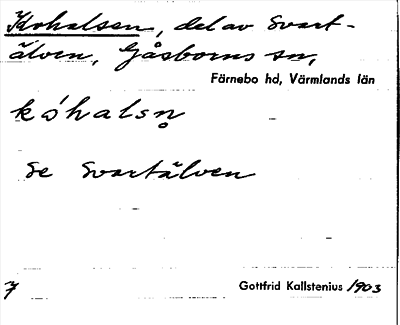 Kohalsen, del av Svart-
älven, Gåsborns sn,
Färnebo hd, Värmlands län
kóhalsn̥
Se Svartälven
7
Gottfrid Kallstenius 1903